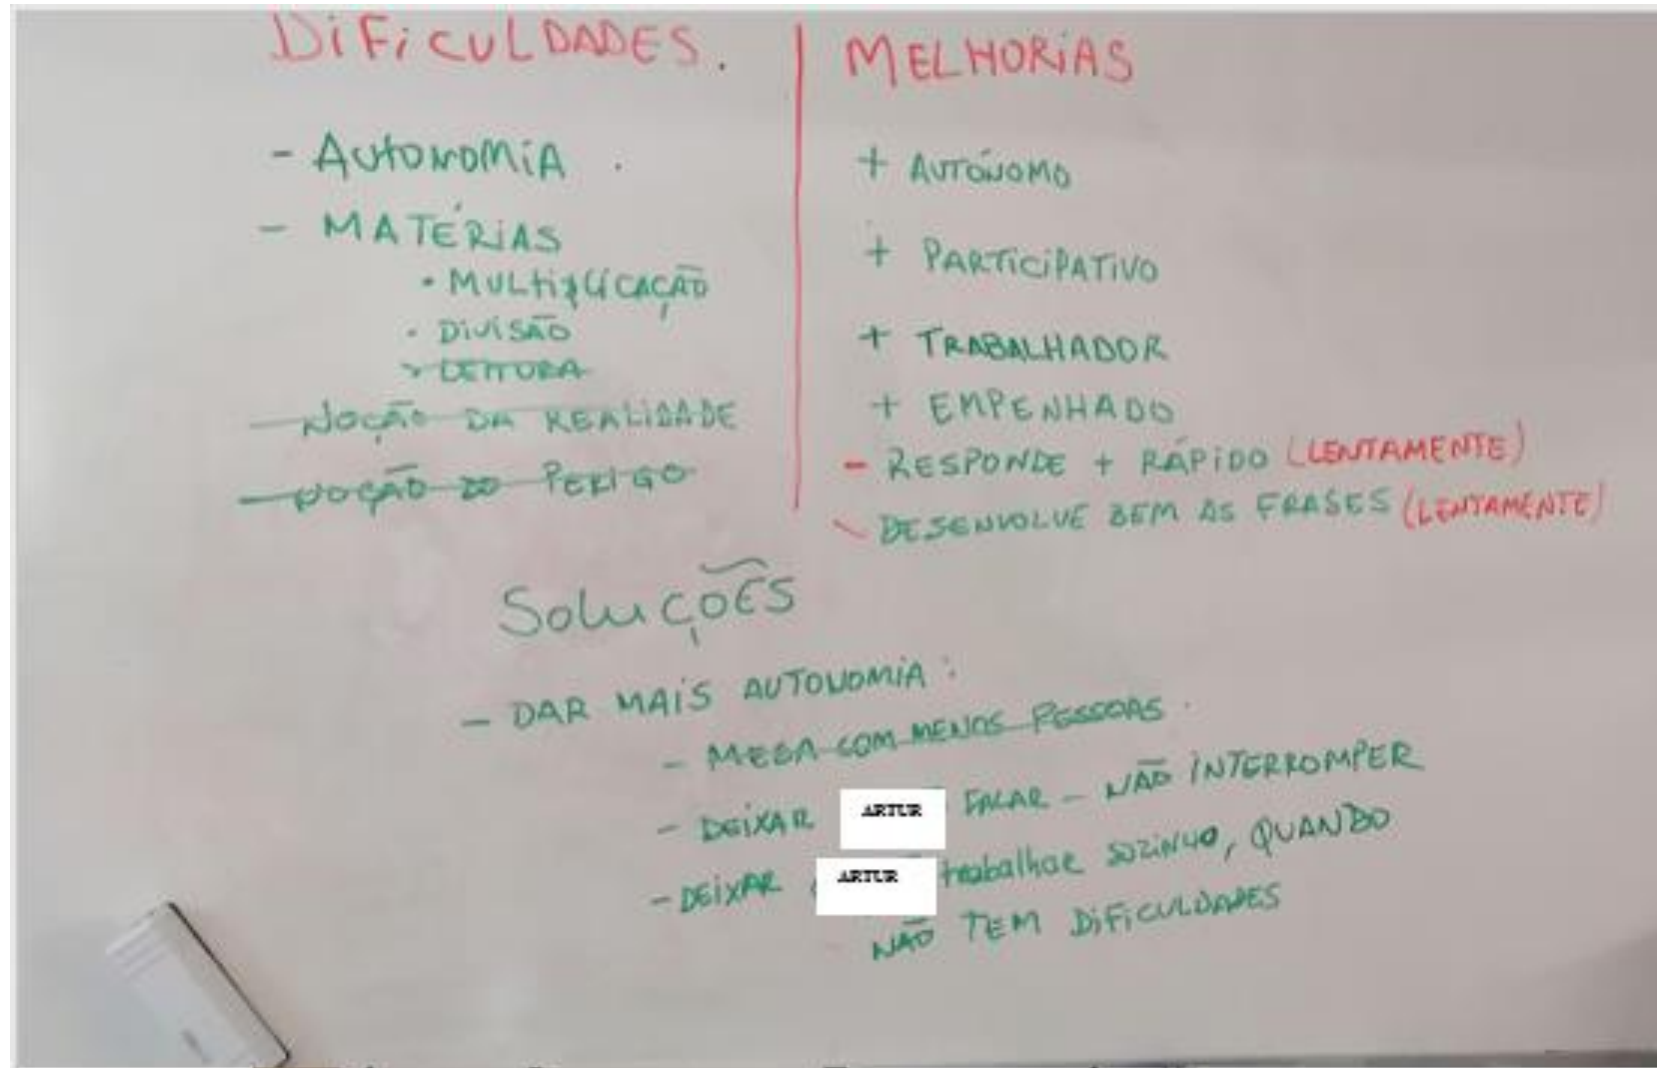 DIFICULDADES.
- AUTONOMIA.
- MATÉRIAS
• MULTIPLICAÇÃO
• DIVISÃO
• LEITURA
- NOÇÃO DA REALIDADE
- NOÇÃO DO PERIGO
MELHORIAS
+ AUTÓNOMO
+ PARTICIPATIVO
+ TRABALHADOR
+ EMPENHADO
- RESPONDE + RÁPIDO (LENTAMENTE)
- DESENVOLVE BEM AS FRASES (LENTAMENTE)
SOLUÇÕES
- DAR MAIS AUTONOMIA:
- MESA COM MENOS PESSOAS.
- DEIXAR ARTUR FALAR - NÃO INTERROMPER
- DEIXAR ARTUR trabalhar SOZINHO, QUANDO
NÃO TEM DIFICULDADES